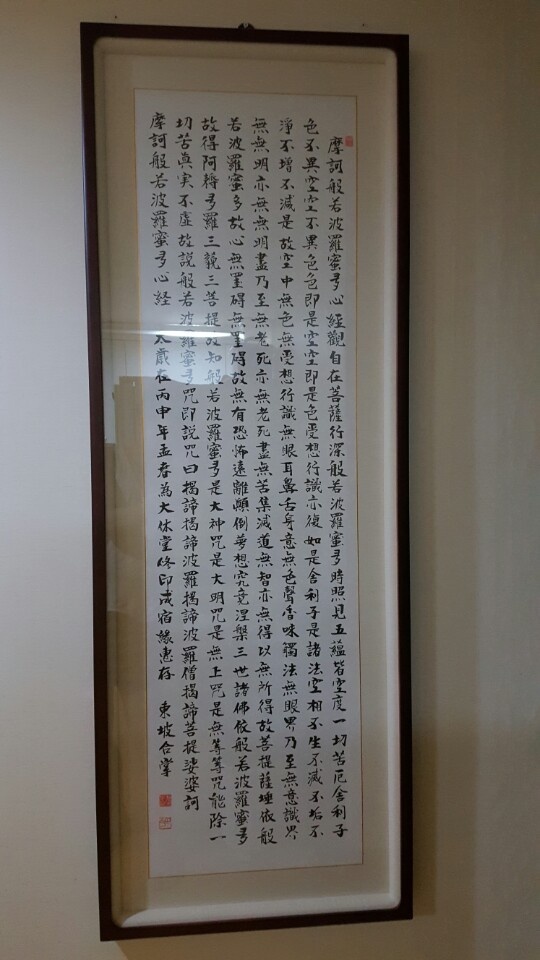 摩訶般若波羅蜜多心經觀自在菩薩行深般若波羅蜜多時照見五蘊皆空度一切苦厄舍利子
色不異空空不異色色即是空空即是色受想行識亦復如是舍利子是諸法空相不生不滅不垢不
淨不增不減是故空中無色無受想行識無眼耳鼻舌身意無色聲香味觸法無眼界乃至無意識界
無無明亦無無明盡乃至無老死亦無老死盡無苦集滅道無智亦無得以無所得故菩提薩埵依般
若波羅蜜多故心無罣碍無罣碍故無有恐怖遠離顚倒夢想究竟涅槃三世諸佛依般若波羅蜜多
故得阿耨多羅三藐三菩提故知般若波羅蜜多是大神咒是大明咒是無上咒是無等等咒能除一
切苦真実不虛故說般若波羅蜜多咒即說咒曰揭諦揭諦波羅揭諦波羅僧揭諦菩提娑婆訶
摩訶般若波羅蜜多心経 太歲在丙申年孟春為大休堂修印成宿緣惠存 東坡合掌